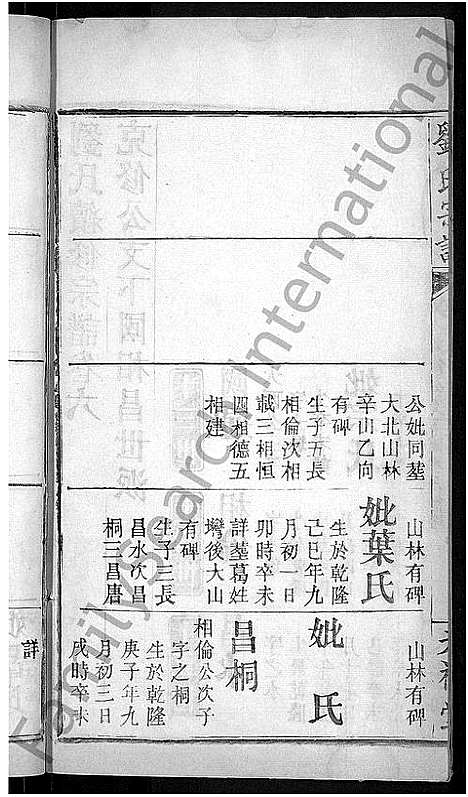 劉氏宗譜
公妣同塋
大北山林
辛山乙向
有碑
生子五長
相倫次相
戩三相恒
四相德五
相建
山林有碑
妣葉氏
生於乾隆
己巳年九
月初一日
卯時辛未
詳塟葛姓
塆後大山
有碑
生子三長
昌水次昌
桐三昌唐
山林有碑
妣 氏
昌桐
相倫公次子
字之桐
生於乾隆
庚子年九
月初三日
戌時辛未
詳
FamilySearch International